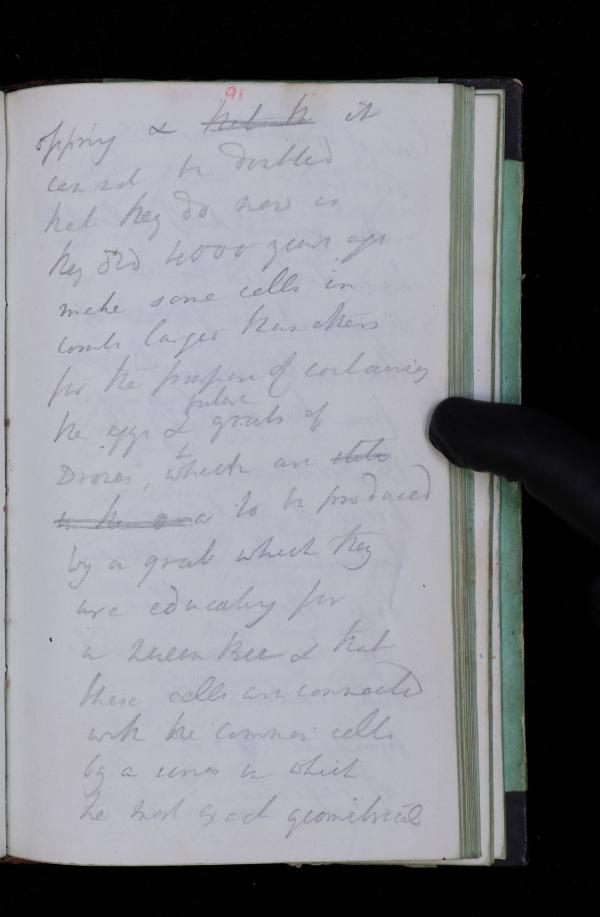 91
offspring & <del>that the</del> it
can not be doubted
that they do now as
they did 4000 years ago
make some cells in
combs larger than others
for the purpose of containing
future
the eggs & grubs of
Drones, which are
to be produced
by a grub which they
are educating for
a Queen Bee & that
these cells are connected
with the common cells
by a series in which
the most exact geometrical